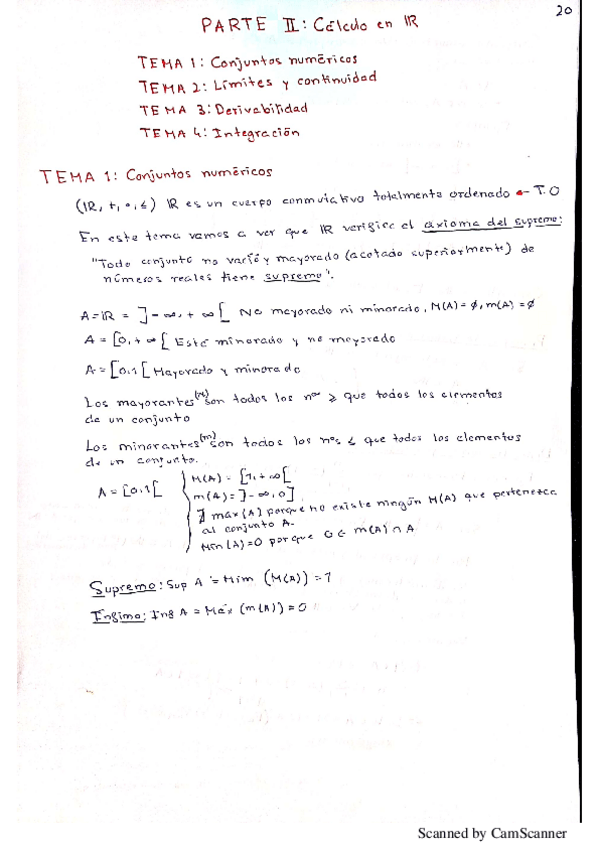 20
PARTE II: Cálculo en IR
TEMA 1: Conjuntos numéricos
TEMA 2: Límites y continuidad
TEMA 3: Derivabilidad
TEMA 4: Integración
TEMA 1: Conjuntos numéricos
(IR, +, ∘, ≤) IR es un cuerpo conmutativo totalmente ordenado ← T.O
En este tema vamos a ver que IR verifica el axioma del supremo:
"Todo conjunto no vacío y mayorado (acotado superiormente) de
números reales tiene supremo".
A = IR = ]-∞, +∞[ No mayorado ni minorado, M(A) = ∅, m(A) = ∅
A = [0, +∞[ Está minorado y no mayorado
A = [0,1[ Mayorado y minorado
Los mayorantes(M) son todos los nos ≥ que todos los elementos
de un conjunto
Los minorantes(m) son todos los nos ≤ que todos los elementos
de un conjunto.
A = [0,1[
M(A) = [1, +∞[
m(A) = ]-∞, 0]
∄ max(A) porque no existe ningún M(A) que pertenezca
al conjunto A.
Min(A) = 0 porque 0 ∈ m(A) ∩ A
Supremo: Sup A = Mim (M(A)) = 1
Ínfimo: Inf A = Máx (m(A)) = 0
Scanned by CamScanner